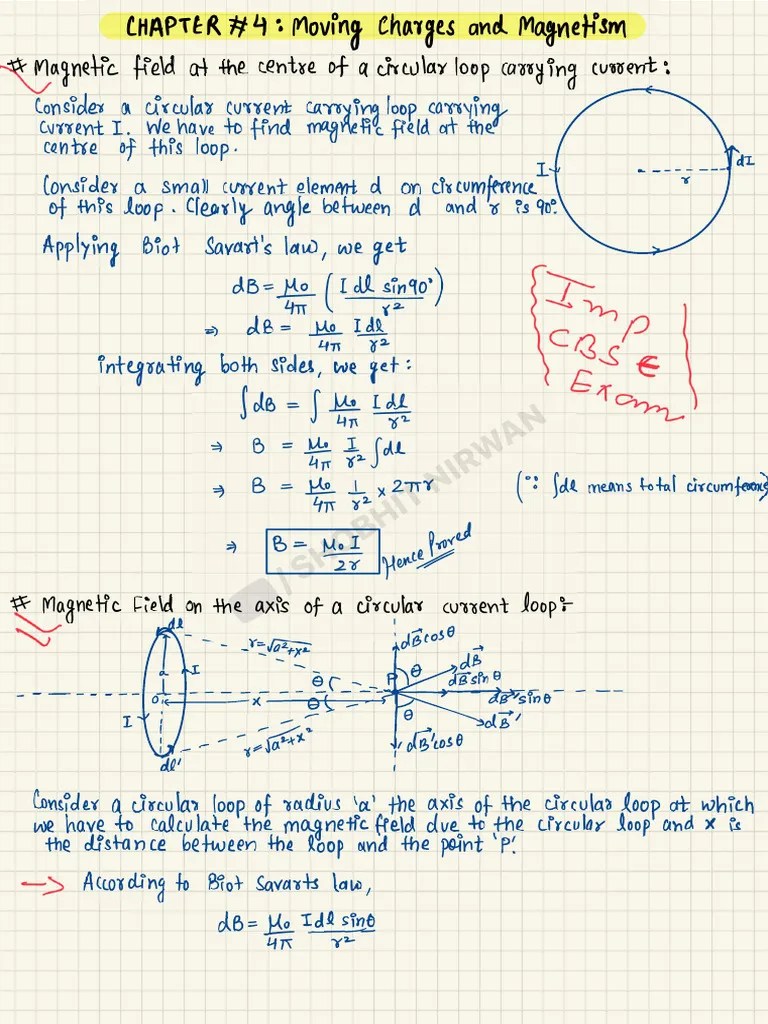 CHAPTER # 4 : Moving Charges and Magnetism
# Magnetic field at the centre of a circular loop carrying current :
Consider a circular current carrying loop carrying
current I. We have to find magnetic field at the
centre of this loop.
I
r
dI
Consider a small current element d on circumference
of this loop. Clearly angle between d and r is 90°.
Applying Biot Savart's law, we get
dB = μ₀/4π (I dl sin90°/r²)
⇒ dB = μ₀/4π I dl/r²
Imp
CBSE
Exam
integrating both sides, we get :
∫dB = ∫ μ₀/4π I dl/r²
⇒ B = μ₀/4π I/r² ∫dl
⇒ B = μ₀/4π 1/r² × 2πr (∵ ∫dl means total circumference)
⇒ B = μ₀ I/2r Hence Proved
/ SHOBHIT NIRWAN
# Magnetic Field on the axis of a circular current loop :-
dl
r=√a²+x²
dB cosθ
a
I
θ
P
θ
dB
dB sinθ
O
x
θ
θ
dB' sinθ
I
dB'
r=√a²+x²
dB' cosθ
dl'
Consider a circular loop of radius 'a' the axis of the circular loop at which
we have to calculate the magnetic field due to the circular loop and x is
the distance between the loop and the point 'P'.
→ According to Biot Savarts law,
dB = μ₀/4π I dl sinθ/r²